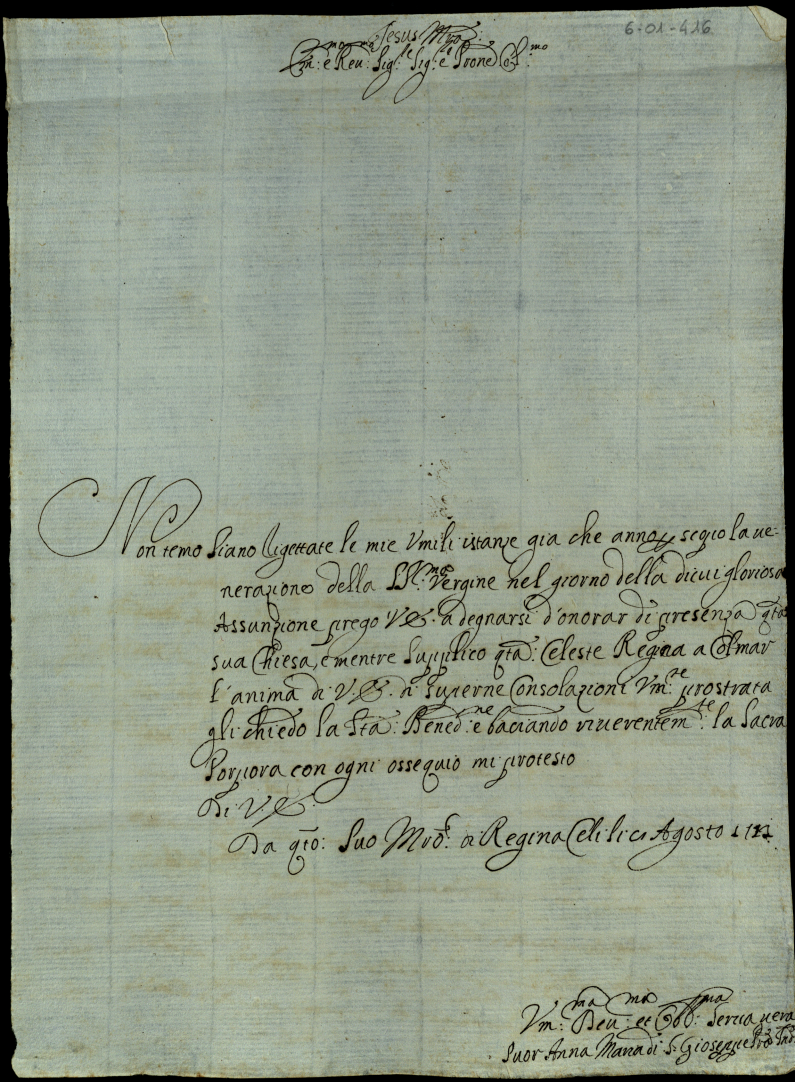 6-01-416
Jesus Mra:
Em:mo e Reu:mo Sig:re Sig:re e Prone Col:mo
Non temo siano rigettate le mie Vmili istanze gia che annoy segio la ve-
nerazione della SS:ma Vergine nel giorno della dicui gloriosa
Assunzione prego V.E. a degnarsi d'onorar di presenza qta
sua Chiesa, e mentre supplico qta: Celeste Regina a Colmar
l'anima di V.E. di superne Consolazioni Vm:te prostrata
gli chiedo la Sta: Bened:ne e baciando riuerentem:te la Sacra
Porpora con ogni ossequio mi protesto
Di V.E.
Da qto: Suo Mro: di Regina Celi li Agosto
Vm:ma Deu:ma et Obb:ma Serua vera
Suor Anna Maria di S: Gioseppe